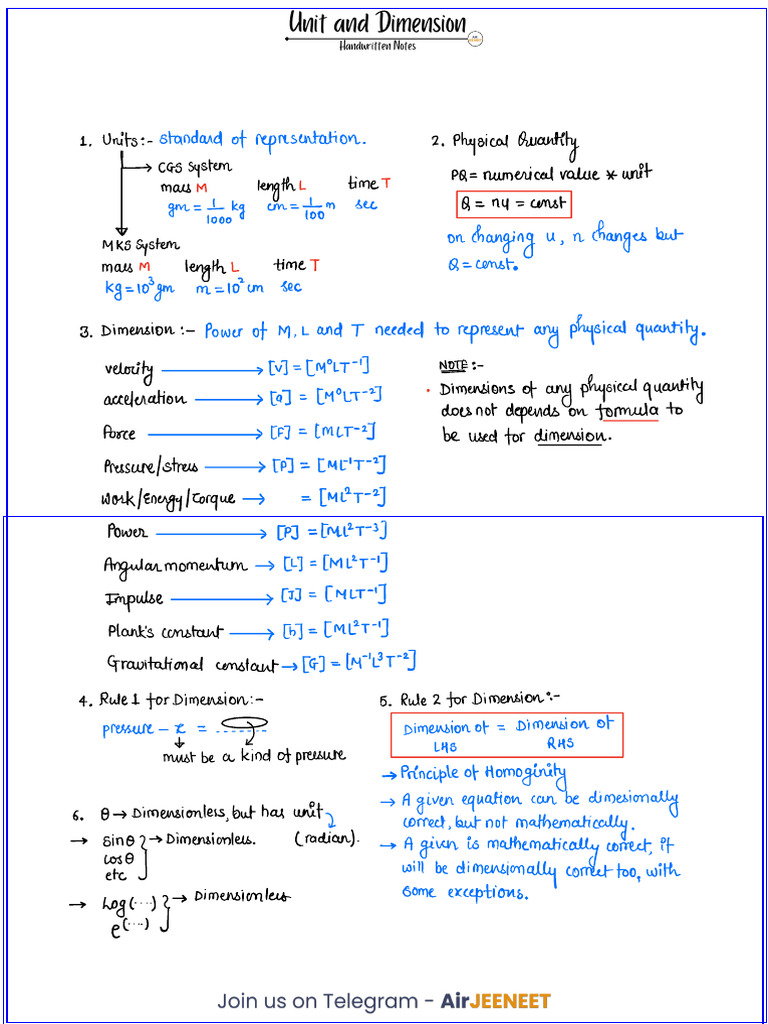 Unit and Dimension
Handwritten Notes
1. Units:- standard of representation.
CGS System
mass M length L time T
gm = 1/1000 kg cm = 1/100 m sec
MKS System
mass M length L time T
kg = 10³ gm m = 10² cm sec
2. Physical Quantity
PQ = numerical value * unit
Q = nu = const
on changing u, n changes but
Q = const.
3. Dimension :- Power of M, L and T needed to represent any physical quantity.
velocity → [V] = [M⁰LT⁻¹]
acceleration → [a] = [M⁰LT⁻²]
Force → [F] = [MLT⁻²]
Pressure/stress → [P] = [ML⁻¹T⁻²]
Work/Energy/Torque → = [ML²T⁻²]
Power → [P] = [ML²T⁻³]
Angular momentum → [L] = [ML²T⁻¹]
Impulse → [J] = [MLT⁻¹]
Plank's constant → [h] = [ML²T⁻¹]
Gravitational constant → [G] = [M⁻¹L³T⁻²]
NOTE :-
• Dimensions of any physical quantity
does not depends on formula to
be used for dimension.
4. Rule 1 for Dimension:-
pressure - x =
must be a kind of pressure
5. Rule 2 for Dimension:-
Dimension of = Dimension of
LHS RHS
→ Principle of Homoginity
→ A given equation can be dimesionally
correct, but not mathematically.
→ A given is mathematically correct, it
will be dimensionally correct too, with
some exceptions.
6. θ → Dimensionless, but has unit
(radian).
→ sinθ } → Dimensionless.
cosθ
etc
→ log(....) } → Dimensionless
e^(....)
Join us on Telegram - AirJEENEET